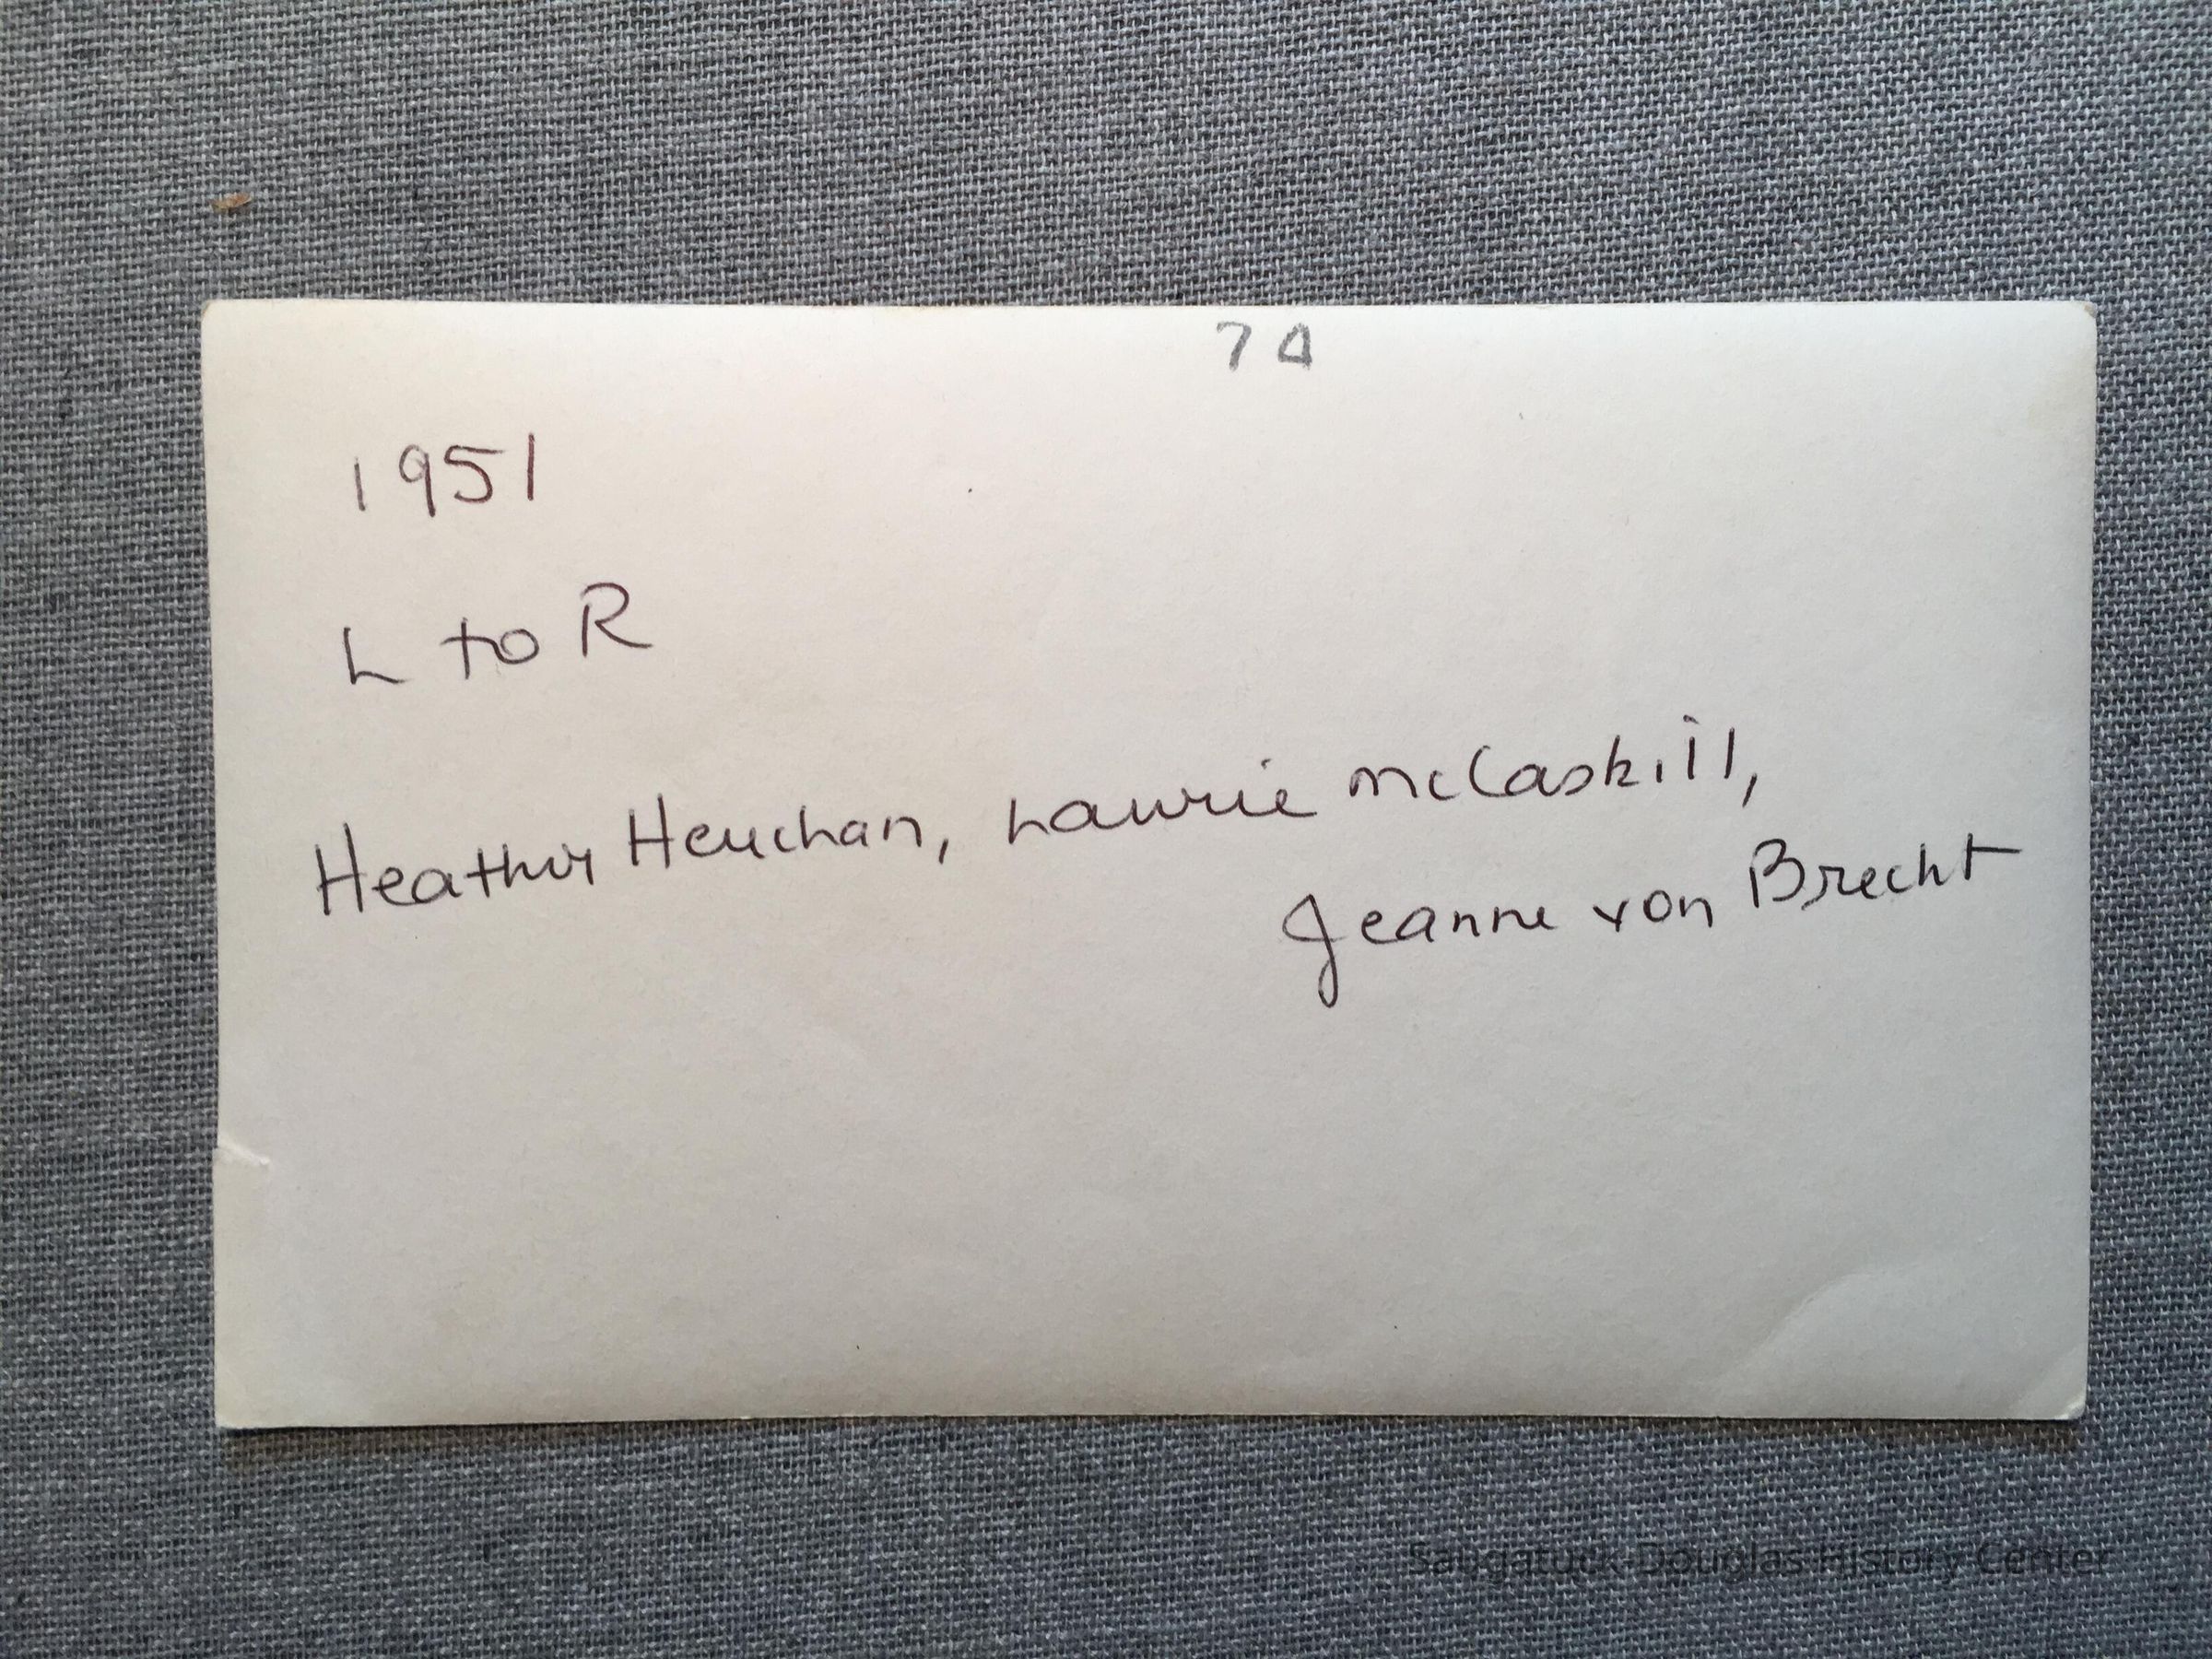 70
1951
L to R
Heather Heuchan, Laurie McCaskill,
Jeanne von Brecht
Saugatuck-Douglas History Center